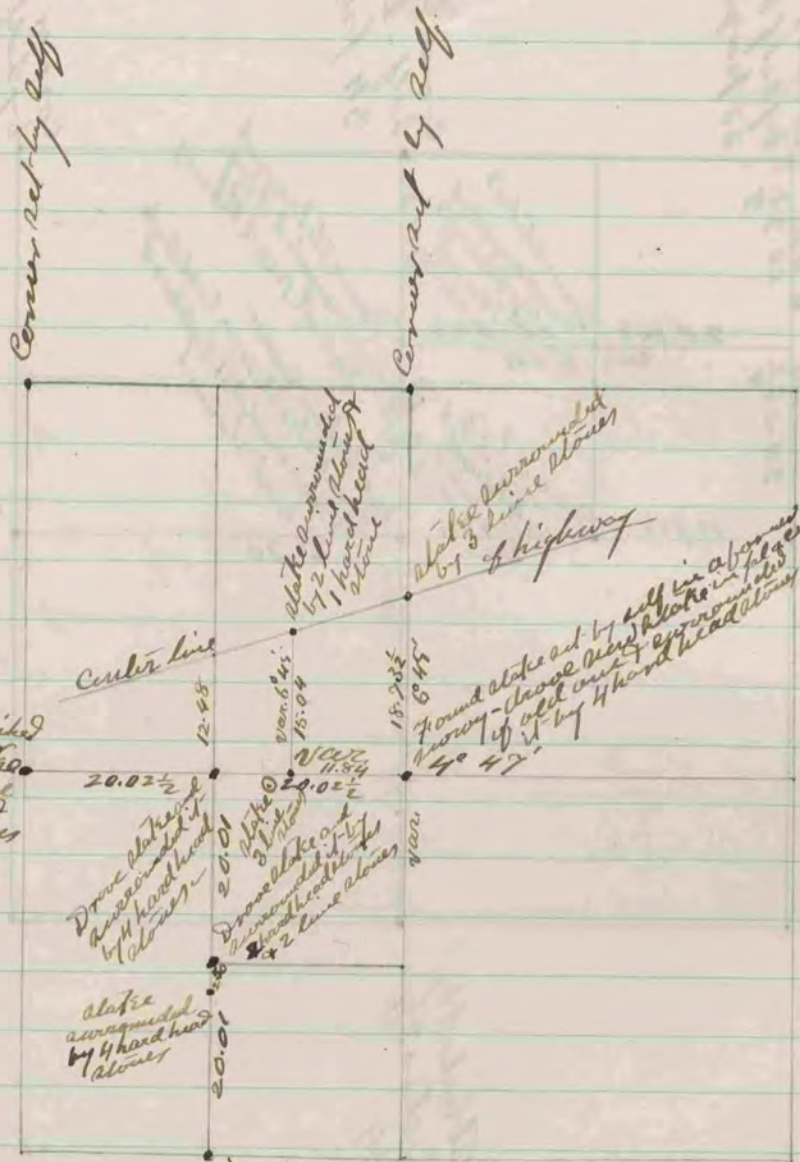 Corner set by self
Corner set by self
stake surrounded
by 2 lime stones &
1 hard head
stone
stake surrounded
by 3 lime stones
highway
Center line
12.48
Var. 6° 45'
15.04
18.73½
6° 45'
Found stake set by self in a former
survey - drove new stake in place
of old one & surrounded
it by 4 hard head stones
4° 47'
Var.
11.84
20.02½
20.02½
Var.
stake @
3 lime
stones
Drove stake and
surrounded it
by 4 hard head
stones
20.01
Drove stake and
surrounded it by
hard head stones
& 2 lime stones
stake
surrounded
by 4 hard head
stones
20.01